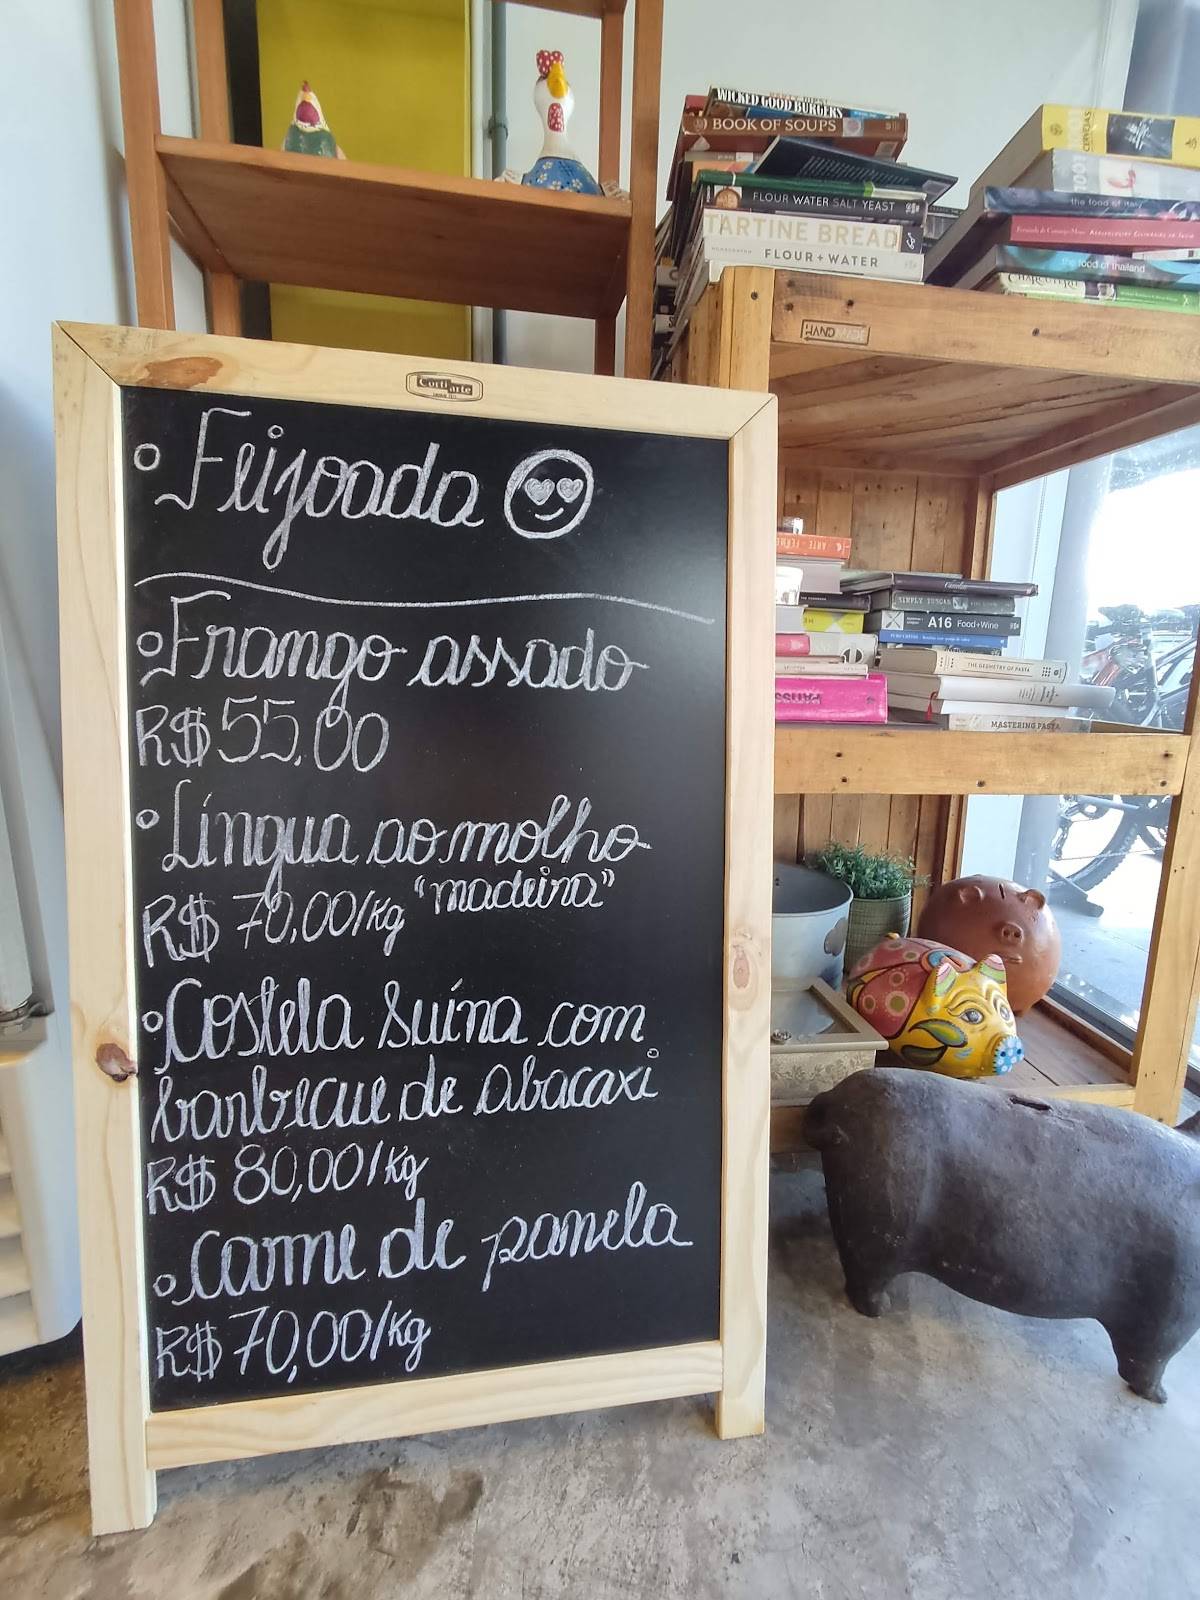 WICKED GOOD BURGERS
BOOK OF SOUPS
FLOUR WATER SALT YEAST
TARTINE BREAD
FLOUR + WATER
CERVEJAS
1001
the food of thailand
HAND MADE
Corti arte
Feijoada
Frango assado
R$ 55,00
Língua ao molho
R$ 70,00/Kg "madeira"
Costela Suína com
barbecue de abacaxi
R$ 80,00/Kg
Carne de panela
R$ 70,00/Kg
SIMPLY TUSCAN
A16 Food + Wine
THE GEOMETRY OF PASTA
MASTERING PASTA